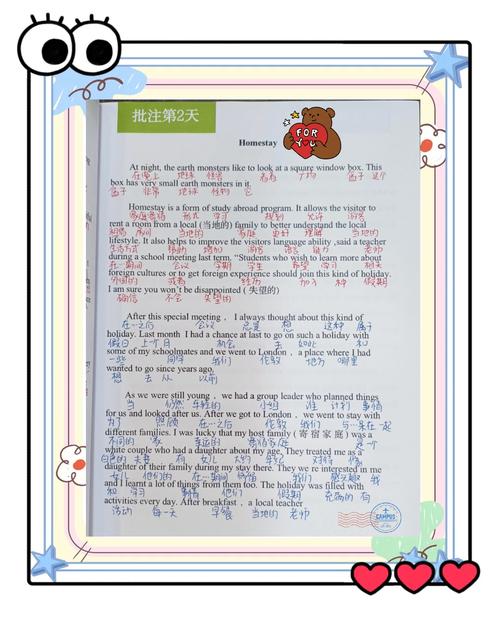 批注第2天
Homestay
FOR
YOU
At night, the earth monsters like to look at a square window box. This
在晚上 地球 怪兽 看着 广场 盒子 这个
box has very small earth monsters in it.
盒子 非常 地球 怪物 它
Homestay is a form of study abroad program. It allows the visitor to
家庭寄宿 形式 学习 规划 允许 游客
rent a room from a local (当地的) family to better understand the local
租借 房间 当地的 家庭 更好 理解 当地的
lifestyle. It also helps to improve the visitors language ability ,said a teacher
生活方式 帮助 增加 游客 语言 能力 老师
during a school meeting last term. “Students who wish to learn more about
在…期间 会议 学期 学生 希望 学习
foreign cultures or to get foreign experience should join this kind of holiday.
外国的 或者 经历 加入 种 假期
I am sure you won't be disappointed ( 失望的 )
确信 不会 失望的
After this special meeting , I always thought about this kind of
在…之后 会议 总是 想 这种
holiday. Last month I had a chance at last to go on such a holiday with
假日 上个月 机会 去 如此 和
some of my schoolmates and we went to London , a place where I had
一些 同学 我们 伦敦 地方 哪里
wanted to go since years ago.
想 去 从 以前
As we were still young , we had a group leader who planned things
当 仍然 年轻的 小组 谁 计划 事情
for us and looked after us. After we got to London , we went to stay with
为了 照顾 在…之后 伦敦 我们 与…呆在一起
different families. I was lucky that my host family ( 寄宿家庭 ) was a
不同的 家 幸运的 寄宿家庭 是一个
white couple who had a daughter about my age. They treated me as a
白色的 夫妻 有 女儿 大约 年纪 对待
daughter of their family during my stay there. They we re interested in me
女儿 他们的 在…期间 停留 我们 感兴趣 我
and I learnt a lot of things from them too. The holiday was filled with
和 学习 事情 他们 假期 充满的
activities every day. After breakfast , a local teacher
活动 每一天 早餐 当地的 老师
CAMPUS